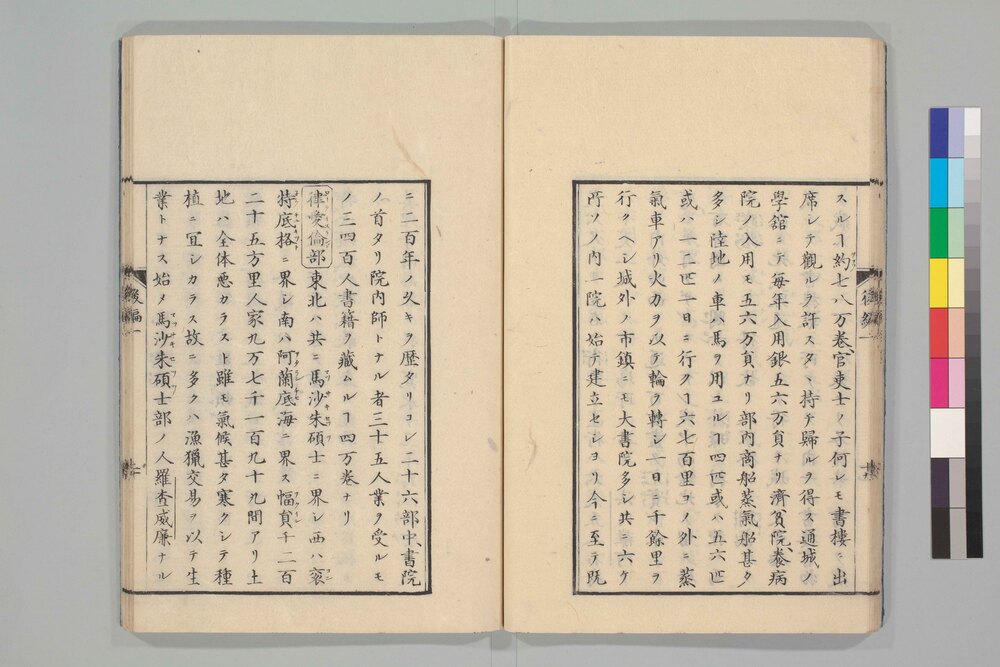 スルヿ約七八万卷官吏士ノ子何レモ書樓ニ出
席シテ觀ルヲ許スタヽ持チ歸ルヲ得ス通城ノ
學舘ニテ每年入用銀五六万貟ナリ濟貧院、養病
院ノ入用モ五六万貟ナリ部內商船蒸氣船甚タ
多シ陸地ノ車ハ馬ヲ用ユルヿ四匹或ハ五六匹
或ハ一二匹一日ニ行クヿ六七百里コノ外ニ蒸
氣車アリ火力ヲ以テ輪ヲ轉シ一日ニ千餘里ヲ
行クヘシ城外ノ市鎮ニモ大書院多シ共ニ六ケ
所ソノ內一院ハ始テ建立セシヨリ今ニ至テ既
ニ二百年ノ久キヲ歷タリコレ二十六部中、書院
ノ首タリ院內師トナル者三十五人業ヲ受ルモ
ノ三四百人書籍ノ藏ムルヿ四万卷ナリ
律愛倫部東北ハ共ニ馬沙朱碩士ニ界シ西ハ袞
特底格ニ界シ南ハ阿蘭底海ニ界ス幅貟千二百
二十五方里人家九万七千一百九十九間アリ土
地ハ全体悪カラスト雖モ氣候甚タ寒クシテ種
植ニ冝シカラス故ニ多クハ漁獵交易ヲ以テ生
業トナス始メ馬沙朱碩士部ノ人羅查威廉ナル
後編一